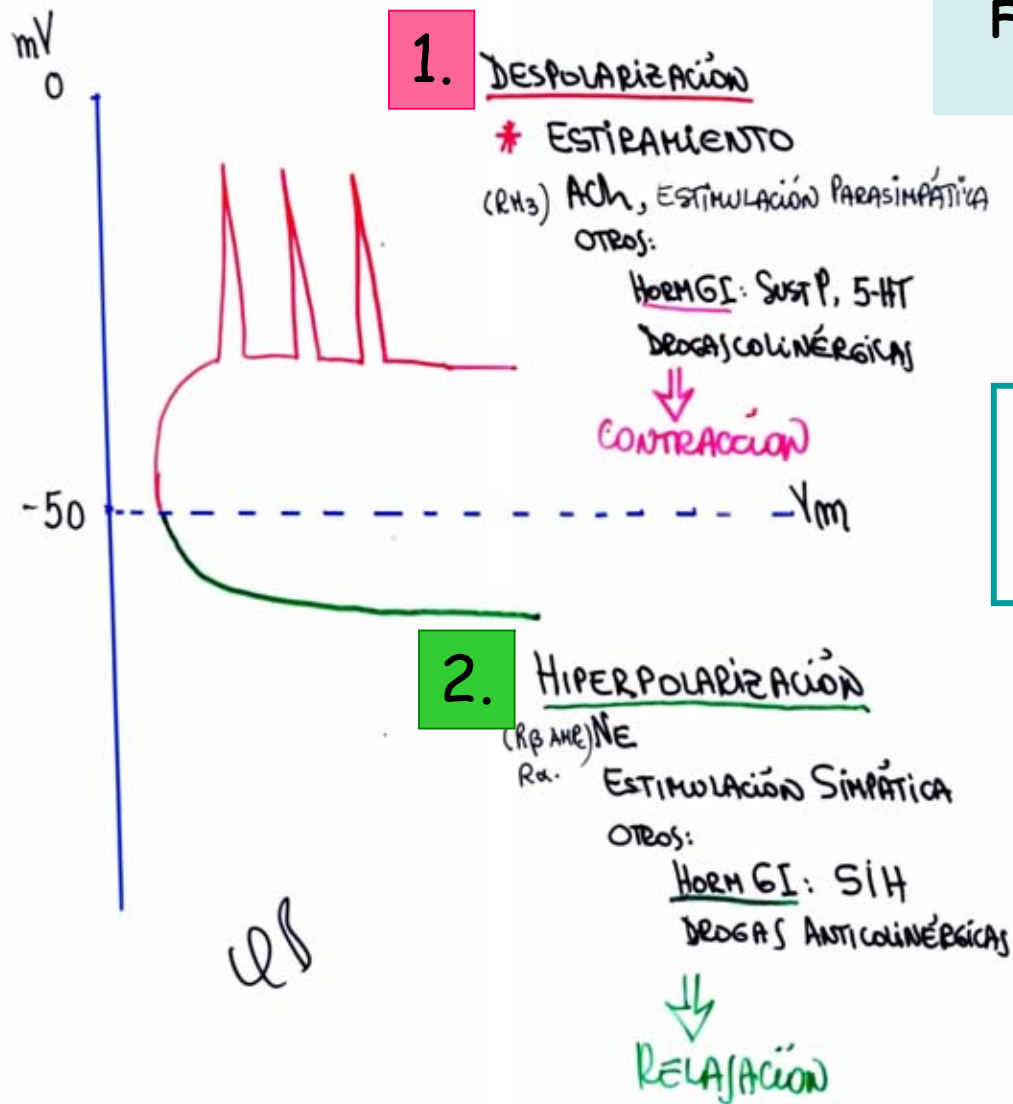 mV
0
1. DESPOLARIZACIÓN
* ESTIRAMIENTO
(RM3) ACh, ESTIMULACIÓN PARASIMPÁTICA
OTROS:
HORM GI: SUST P, 5-HT
DROGAS COLINÉRGICAS
CONTRACCIÓN
-50
Vm
2. HIPERPOLARIZACIÓN
(Rβ AMPc) NE
Rα.
ESTIMULACIÓN SIMPÁTICA
OTROS:
HORM GI: SIH
DROGAS ANTICOLINÉRGICAS
RELAJACIÓN